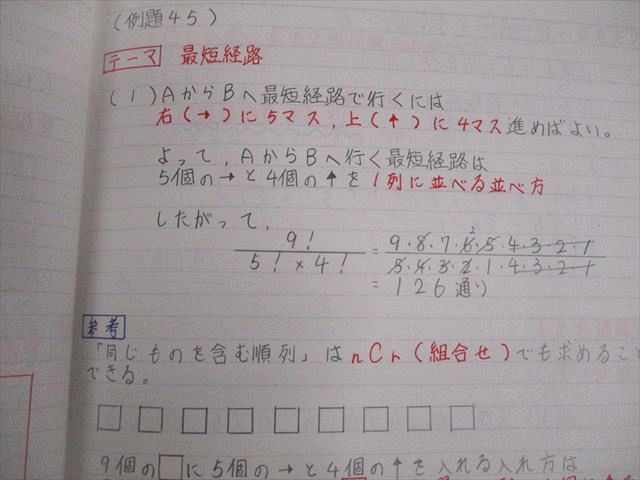 (例題45)
テーマ 最短経路
(1) AからBへ最短経路で行くには
右(→)に5マス,上(↑)に4マス進めばよい。
よって,AからBへ行く最短経路は
5個の→と4個の↑を1列に並べる並べ方
したがって,
9! / 5!×4! = 9・8・7・6・5・4・3・2・1 / 5・4・3・2・1・4・3・2・1
2
= 126通り
参考
「同じものを含む順列」はnCr(組合せ)でも求めること
できる。
□ □ □ □ □ □ □ □ □
9個の□に5個の→と4個の↑を入れる入れ方は